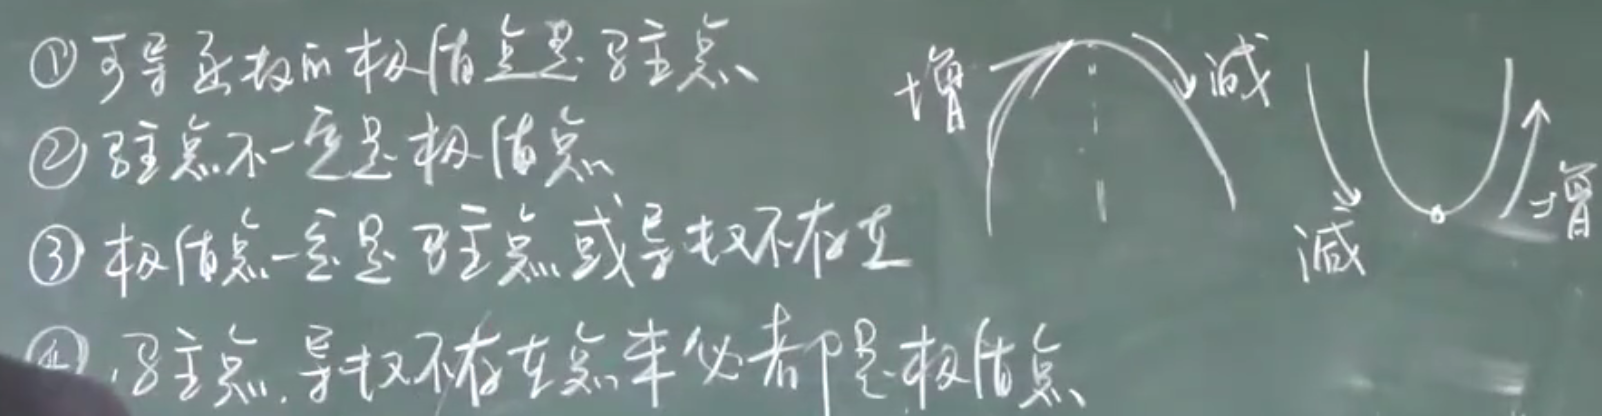 ①可导函数的极值点是驻点
②驻点不一定是极值点
③极值点一定是驻点或导数不存在
④.驻点.导数不存在点未必都是极值点
增
减
减
增